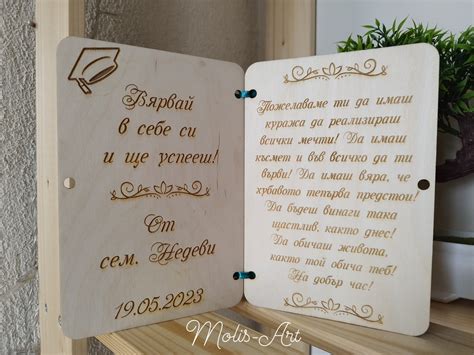 Вярвай
в себе си
и ще успееш!
От
сем. Недеви
19.05.2023
Пожелаваме ти да имаш
куража да реализираш
всички мечти! Да имаш
късмет и във всичко да ти
върви! Да имаш вяра, че
хубавото тепърва предстои!
Да бъдеш винаги така
щастлив, както днес!
Да обичаш живота,
както той обича теб!
На добър час!
Molis-Art